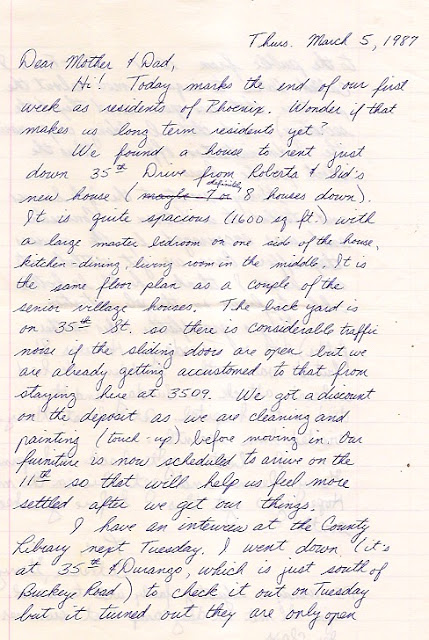 Thurs. March 5, 1987
Dear Mother & Dad,
Hi! Today marks the end of our first
week as residents of Phoenix. Wonder if that
makes us long term residents yet?
We found a house to rent just
down 35th Drive from Roberta & Sid's
definitely
new house (maybe 7 or 8 houses down).
It is quite spacious (1600 sq ft.) with
a large master bedroom on one side of the house,
kitchen-dining, living room in the middle. It is
the same floor plan as a couple of the
senior village houses. The back yard is
on 35th St. so there is considerable traffic
noise if the sliding doors are open but we
are already getting accustomed to that from
staying here at 3509. We got a discount
on the deposit as we are cleaning and
painting (touch-up) before moving in. Our
furniture is now scheduled to arrive on the
11th so that will help us feel more
settled after we get our things.
I have an interview at the County
Library next Tuesday. I went down (it's
at 35th & Durango, which is just south of
Buckeye Road) to check it out on Tuesday
but it turned out they are only open